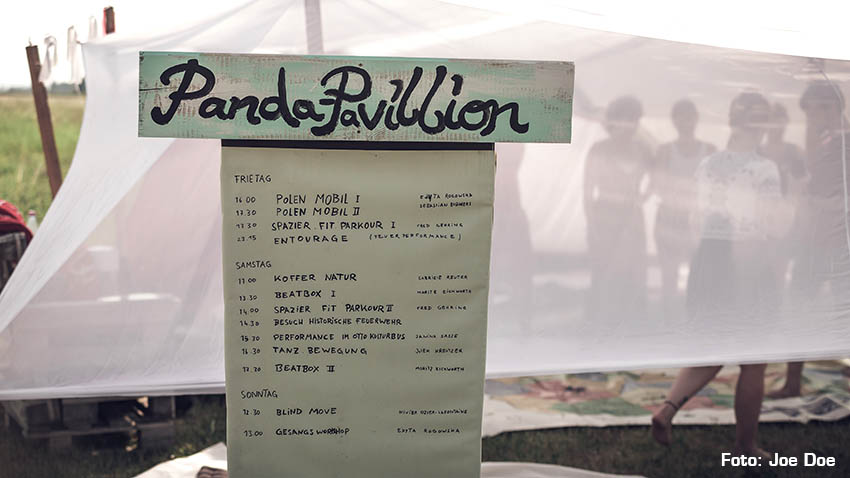 Panda-Pavillion
FRIETAG
16 00 POLEN MOBIL I EDYTA ROGOWSKA
17.30 POLEN MOBIL II SEBASTIAN
17.30 SPAZIER FIT PARKOUR I FRED GEHRING
23.15 ENTOURAGE (FEUERPERFORMANCE)
SAMSTAG
KOFFER NATUR GABRIELE REUTER
BEATBOX I MORITZ EICKWORTH
14.00 SPAZIER FIT PARKOUR II FRED GEHRING
14.30 BESUCH HISTORISCHE FEUERWEHR
15.30 PERFORMANCE IM OTTO KULTURBUS
16.30 TANZ BEWEGUNG
17.30 BEATBOX II MORITZ EICKWORTH
SONNTAG
12.30 BLIND MOVE
13.00 GESANGSWORKSHOP EDYTA ROGOWSKA
Foto: Joe Doe